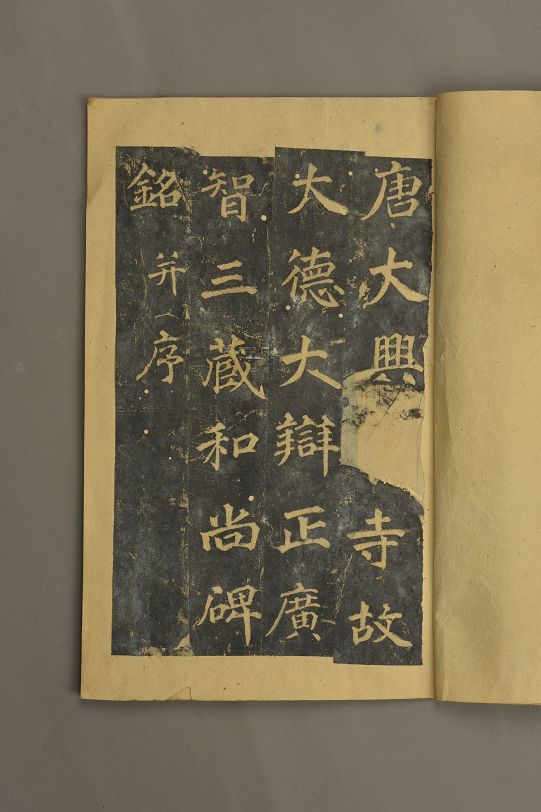 唐大興寺故
大德大辯正廣
智三藏和尚碑
銘并序